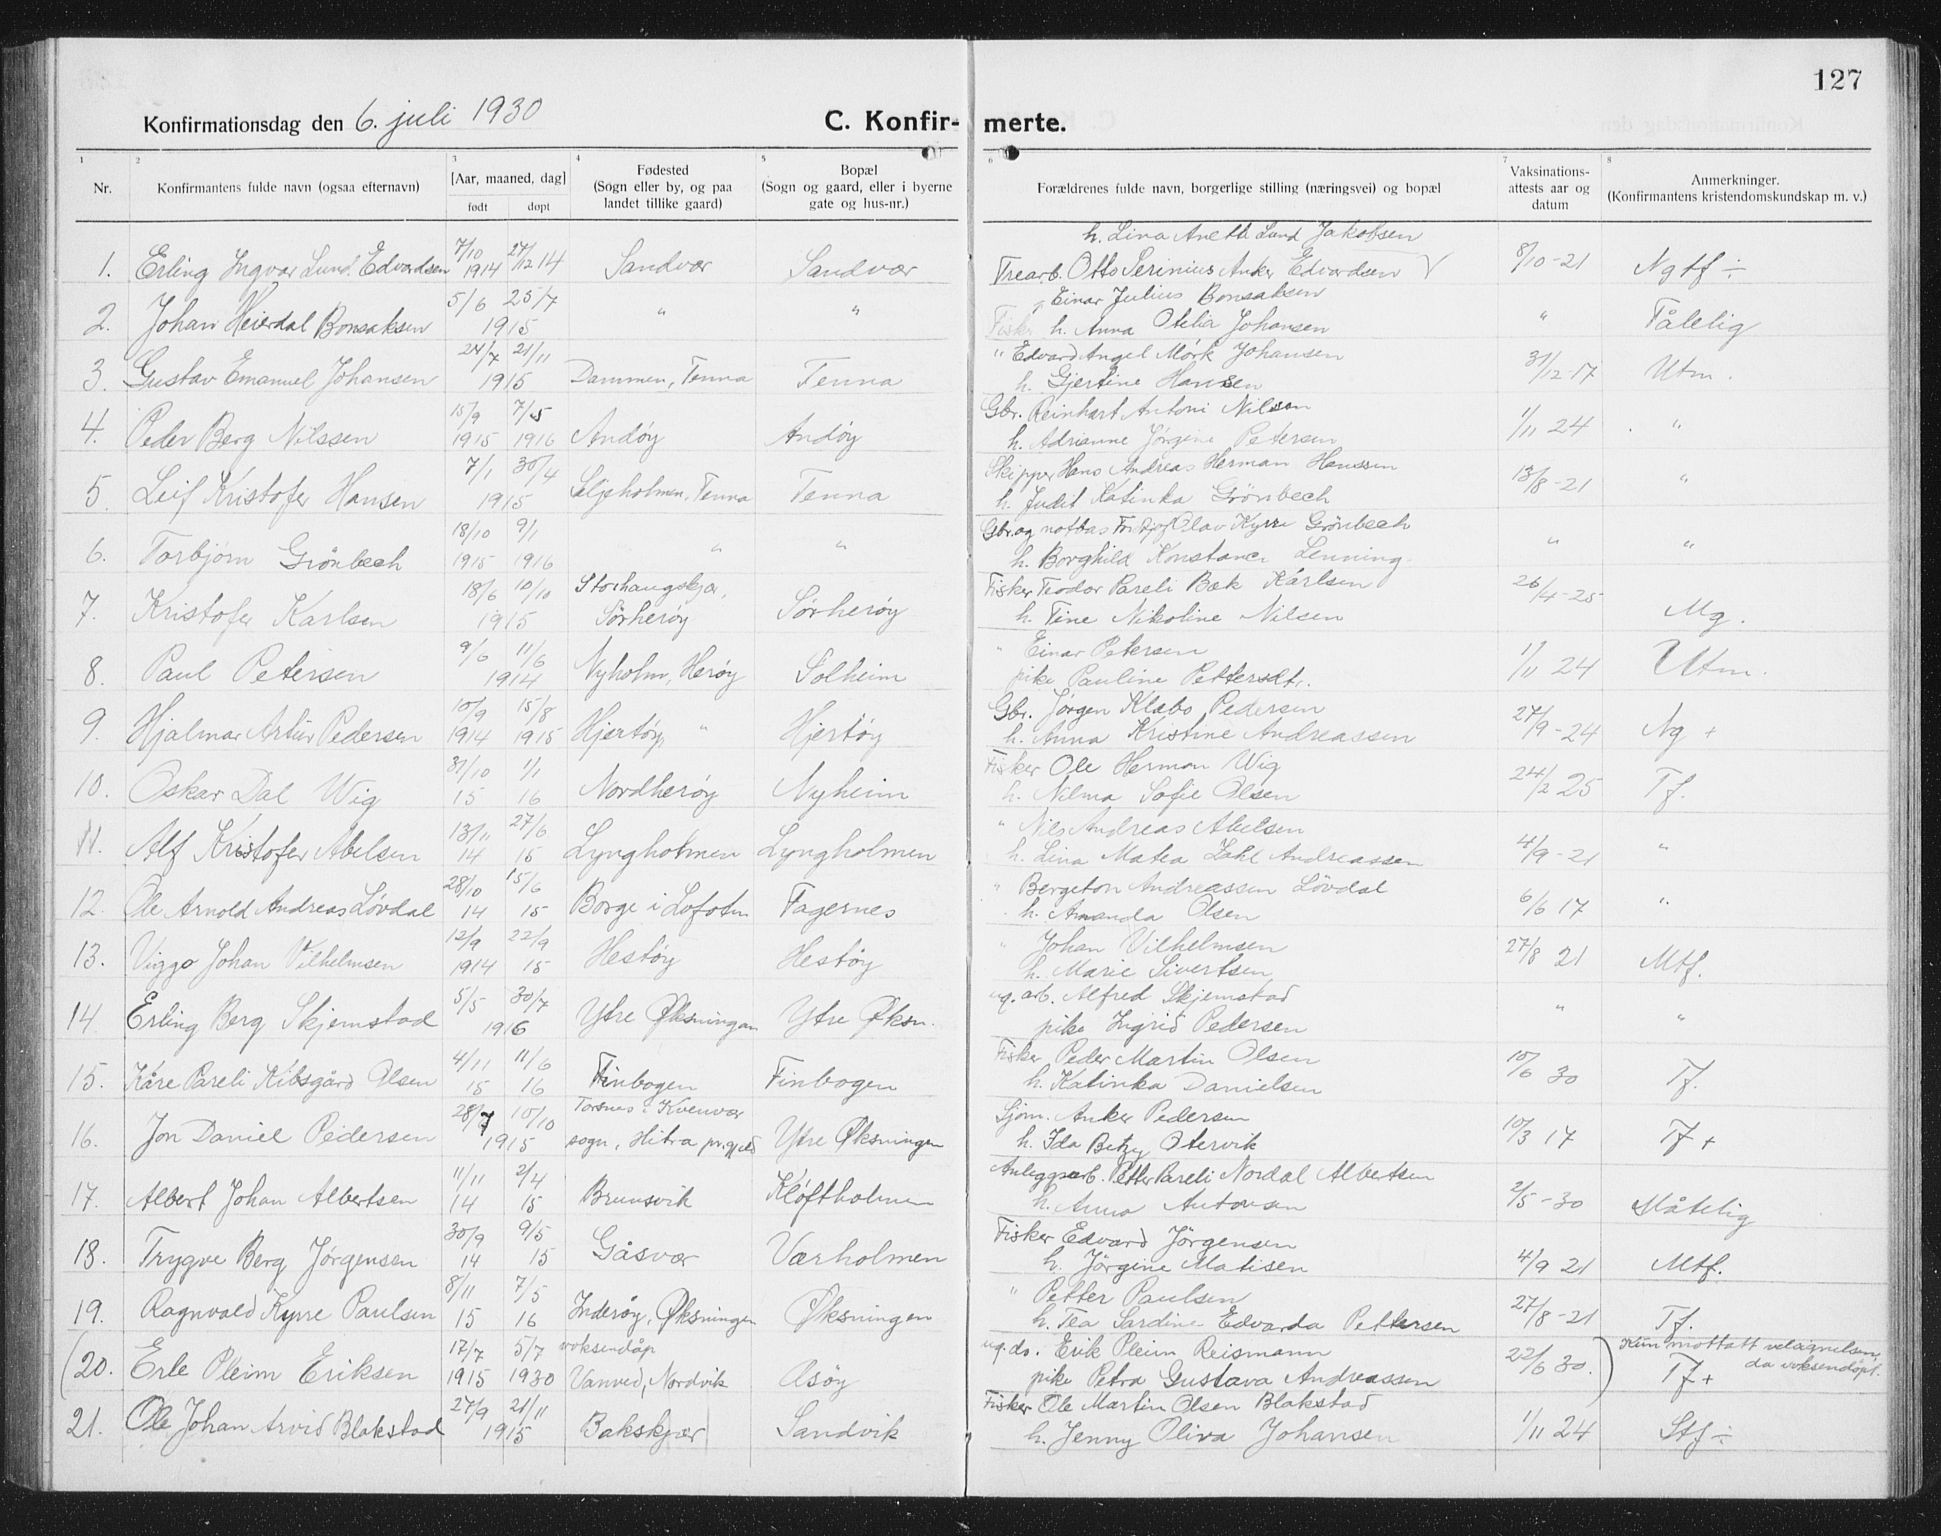 127
Konfirmationsdag den 6. juli 1930 C. Konfir- merte.
1 2 3 4 5 6 7 8
Nr. Konfirmantens fulde navn (ogsaa efternavn) [Aar, maaned, dag] født døpt Fødested (Sogn eller by, og paa landet tillike gaard) Bopæl (Sogn og gaard, eller i byerne gate og hus-nr.) Forældrenes fulde navn, borgerlige stilling (næringsvei) og bopæl Vaksinations-attests aar og datum Anmerkninger. (Konfirmantens kristendomskundskap m. v.)
h. Lina Aneth Lund Jakobsen
1. Erling Ingvar Lund Edvardsen 7/10 1914 27/12 14 Sandvær Sandvær Trearb. Otto Serinius Anker Edvardsen 8/10-21 Ngtf ÷
Einar Julius Bonsaksen
2. Johan Heierdal Bonsaksen 5/6 25/7 1915 " " Fisker h. Anna Otelia Johansen " Tålelig
" Edvard Angel Mörk Johansen
3. Gustav Emanuel Johansen 24/7 21/11 1915 Dammen, Tenna Tenna h. Gjertine Hansen 31/12-17 Utm.
Gbr. Reinhart Antoni Nilsen
4. Peder Berg Nilssen 15/9 1915 7/5 1916 Andøy Andøy h. Adrianne Jørgine Petersen 1/11 24 "
Skipper Hans Andreas Herman Hanssen
5. Leif Kristofer Hansen 7/1 30/4 1915 Seljeholmen, Tenna Tenna h. Judit Katinka Grönbech 13/8-21 "
Gbr. og notbas Fridtjof Olav Kyrre Grönbech
6. Torbjørn Grönbech 18/10 1915 9/1 1916 " " h. Borghild Konstance Lenning " "
Fisker Teodor Pareli Bæk Karlsen
7. Kristofer Karlsen 18/6 10/10 1915 Storhaugskjær, Sörherøy Sørherøy h. Tine Nikoline Nilsen 26/4-25 Mg.
" Einar Petersen
8. Paul Petersen 9/6 11/6 1914 Nyholm, Herøy Solheim pike Pauline Pettersdt. 1/11 24 Utm.
Gbr. Jørgen Klæbo Pedersen
9. Hjalmar Artur Pedersen 10/9 1914 15/8 1915 Hjertøy, " Hjertøy h. Anna Kristine Andreassen 27/9-24 Ng +
Fisker Ole Herman Wig
10. Oskar Dal Wig 31/10 15 1/1 16 Nordherøy Nyheim h. Nilma Sofie Olsen 24/2 25 Tf.
" Nils Andreas Abelsen
11. Alf Kristofer Abelsen 13/11 14 27/6 15 Lyngholmen Lyngholmen h. Lina Matea Zahl Andreassen 4/9-21 "
" Bergeton Andreassen Lövdal
12. Ole Arnold Andreas Lövdal 28/10 14 15/6 15 Borge i Lofoten Fagernes h. Amanda Olsen 6/6 17 "
" Johan Vilhelmsen
13. Viggo Johan Vilhelmsen 12/9 1914 22/9 15 Hestøy Hestøy h. Marie Sivertsen 27/8 21 Mtf.
ug. arb. Alfred Skjemstad
14. Erling Berg Skjemstad 5/5 30/7 1916 Ytre Øksningan Ytre Øksn. pike Ingrid Pedersen " "
Fisker Peder Martin Olsen
15. Kåre Pareli Kibsgård Olsen 4/11 15 11/6 16 Finbogen Finbogen h. Katinka Danielsen 10/6 30 Tf.
Sjøm. Anker Pedersen
16. Jon Daniel Pedersen 28/7 10/10 1915 Torsnes i Kvenvær sogn, Hitra pr.gjeld Ytre Øksningen h. Ida Betzy Otervik 10/3 17 Tf +
Anleggsarb. Petter Pareli Nordal Albertsen
17. Albert Johan Albertsen 11/11 14 2/4 15 Brunsvik Kløftholmen h. Anna Antonsen 2/5-30 Måtelig
Fisker Edvard Jörgensen
18. Trygve Berg Jørgensen 30/9 14 9/5 15 Gåsvær Værholmen h. Jörgine Matisen 4/9 21 Mtf.
" Petter Paulsen
19. Ragnvald Kyrre Paulsen 8/11 15 7/5 16 Inderøy, Øksningen Øksningen h. Tea Sardine Edvarda Pettersen 27/8-21 Tf.
ug. do. Erik Pleim Reismann
(20. Erle Pleim Eriksen 17/7 1915 5/7 1930 voksendåp Vanved, Nordvik Åsøy pike Petra Gustava Andreassen 22/6 30. ) Kun mottatt velsignelsen, da voksendøpt. Tf +
Fisker Ole Martin Olsen Blakstad
21. Ole Johan Arvid Blakstad 27/9 21/11 1915 Bakskjær Sandvik h. Jenny Oliva Johansen 1/11 24 Stf ÷